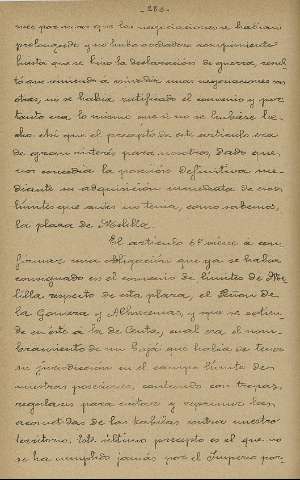 -286-
mes por mas que las negociaciones se habian
prolongado y no hubo verdadero rompimiento
hasta que se hizo la declaración de guerra, resul
tó que viniendo á
otras, no se habia ratificado el convenio y por
tanto era lo mismo que si no se hubiese he-
cho. Asi que el precepto de este articulo era
de gran interés para nosotros, dado que
nos concedia la posesión definitiva me-
diante su adquisición inmediata de esos
límites que antes no tenia, como sabemos,
la plaza de Melilla.
El artículo 6º viene á con
firmar una obligación que ya se habia
consignado en el convenio de límites de Me-
lilla respecto de esta plaza, el Peñon de
la Gomera y Alhucemas, y que se extien-
de en éste á la de Ceuta, cual era el nom-
bramiento de un Bajá que habia de tener
su jurisdiccion en el campo límite de
nuestras posesiones, contando con tropas
regulares para evitar y reprimir las
acometidas de las kabilas contra nuestro
territorio. Este último precepto es el que no
se ha cumplido jamás por el Imperio por-